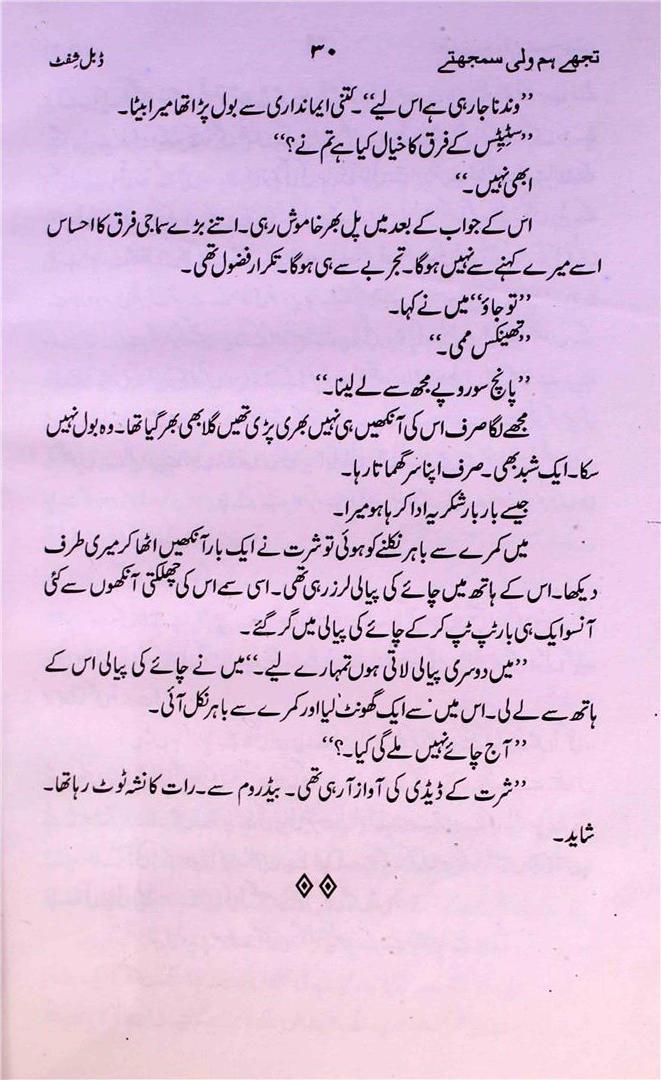 تجھے ہم ولی سمجھتے ۳۰ ڈبل شِفٹ
’’وندنا جا رہی ہے اس لیے‘‘۔ کتنی ایمانداری سے بول پڑا تھا میرا بیٹا۔
’’سٹیٹس کے فرق کا خیال کیا ہے تم نے؟‘‘
ابھی نہیں۔‘‘
اس کے جواب کے بعد میں پل بھر خاموش رہی۔ اتنے بڑے سماجی فرق کا احساس
اسے میرے کہنے سے نہیں ہوگا۔ تجربے سے ہی ہوگا۔ تکرار فضول تھی۔
’’تو جاؤ‘‘ میں نے کہا۔
’’تھینکس ممی۔‘‘
’’پانچ سو روپے مجھ سے لے لینا۔‘‘
مجھے لگا صرف اس کی آنکھیں ہی نہیں بھری پڑی تھیں گلا بھی بھر گیا تھا۔ وہ بول نہیں
سکا۔ ایک شبد بھی۔ صرف اپنا سر گھماتا رہا۔
جیسے بار بار شکریہ ادا کر رہا ہو میرا۔
میں کمرے سے باہر نکلنے کو ہوئی تو شرت نے ایک بار آنکھیں اٹھا کر میری طرف
دیکھا۔ اس کے ہاتھ میں چائے کی پیالی لرز رہی تھی۔ اسی سمے اس کی چھلکتی آنکھوں سے کئی
آنسو ایک ہی بار ٹپ ٹپ کر کے چائے کی پیالی میں گر گئے۔
’’میں دوسری پیالی لاتی ہوں تمہارے لیے۔‘‘ میں نے چائے کی پیالی اس کے
ہاتھ سے لے لی۔ اس میں سے ایک گھونٹ لیا اور کمرے سے باہر نکل آئی۔
’’آج چائے نہیں ملے گی کیا۔؟‘‘
’’شرت کے ڈیڈی کی آواز آ رہی تھی۔ بیڈروم سے۔ رات کا نشہ ٹوٹ رہا تھا۔
شاید۔